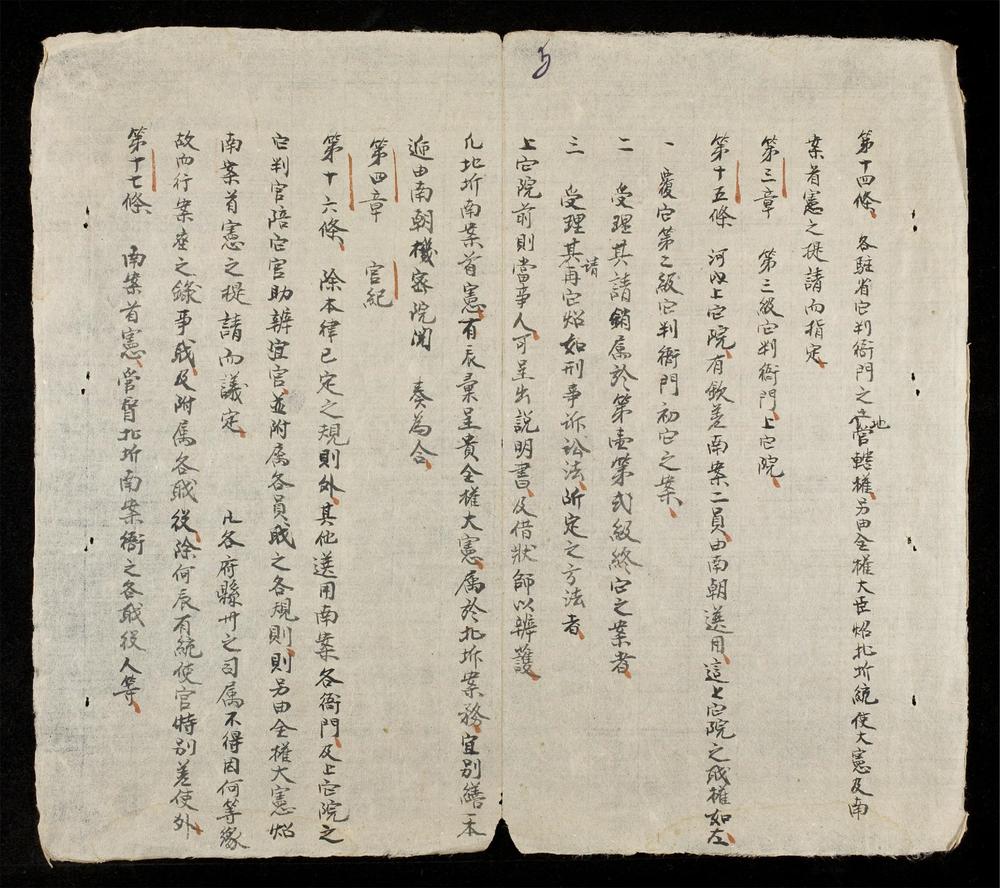 5
第十四條、各駐省㝎判衙門之土地管轄權、另由全權大臣炤北圻統使大憲及南
案首憲之提請而指定、
第三章 第三級㝎判衙門、上㝎院、
第十五條 河內上㝎院、有欽差南案二員、由南朝選用、這上㝎院之戝權如左、
一 覆㝎第二級㝎判衙門初㝎之案、
二 受理其請銷屬於第壹第弍級終㝎之案者、
三 受理其請再㝎炤如刑事訴訟法、所定之方法者、
上㝎院前則當事人、可呈出說明書、及借狀師以辨護、
凡北圻南案首憲、有辰彙呈貴全權大憲、屬於北圻案務、宜別繕一本
遞由南朝機密院閱 奏為合、
第四章 官紀
第十六條、除本律已定之規則外、其他選用南案各衙門、及上㝎院之
㝎判官陪㝎官助辨宜官、並附屬各員戝之各規則、則另由全權大憲炤
南案首憲之提請而議定、 凡各府縣州之司屬不得因何等緣
故而行案座之錄事戝、及附屬各戝役、除何辰有統使官特別差使外、
第十七條、南案首憲、管督北圻南案衙之各戝役人等、